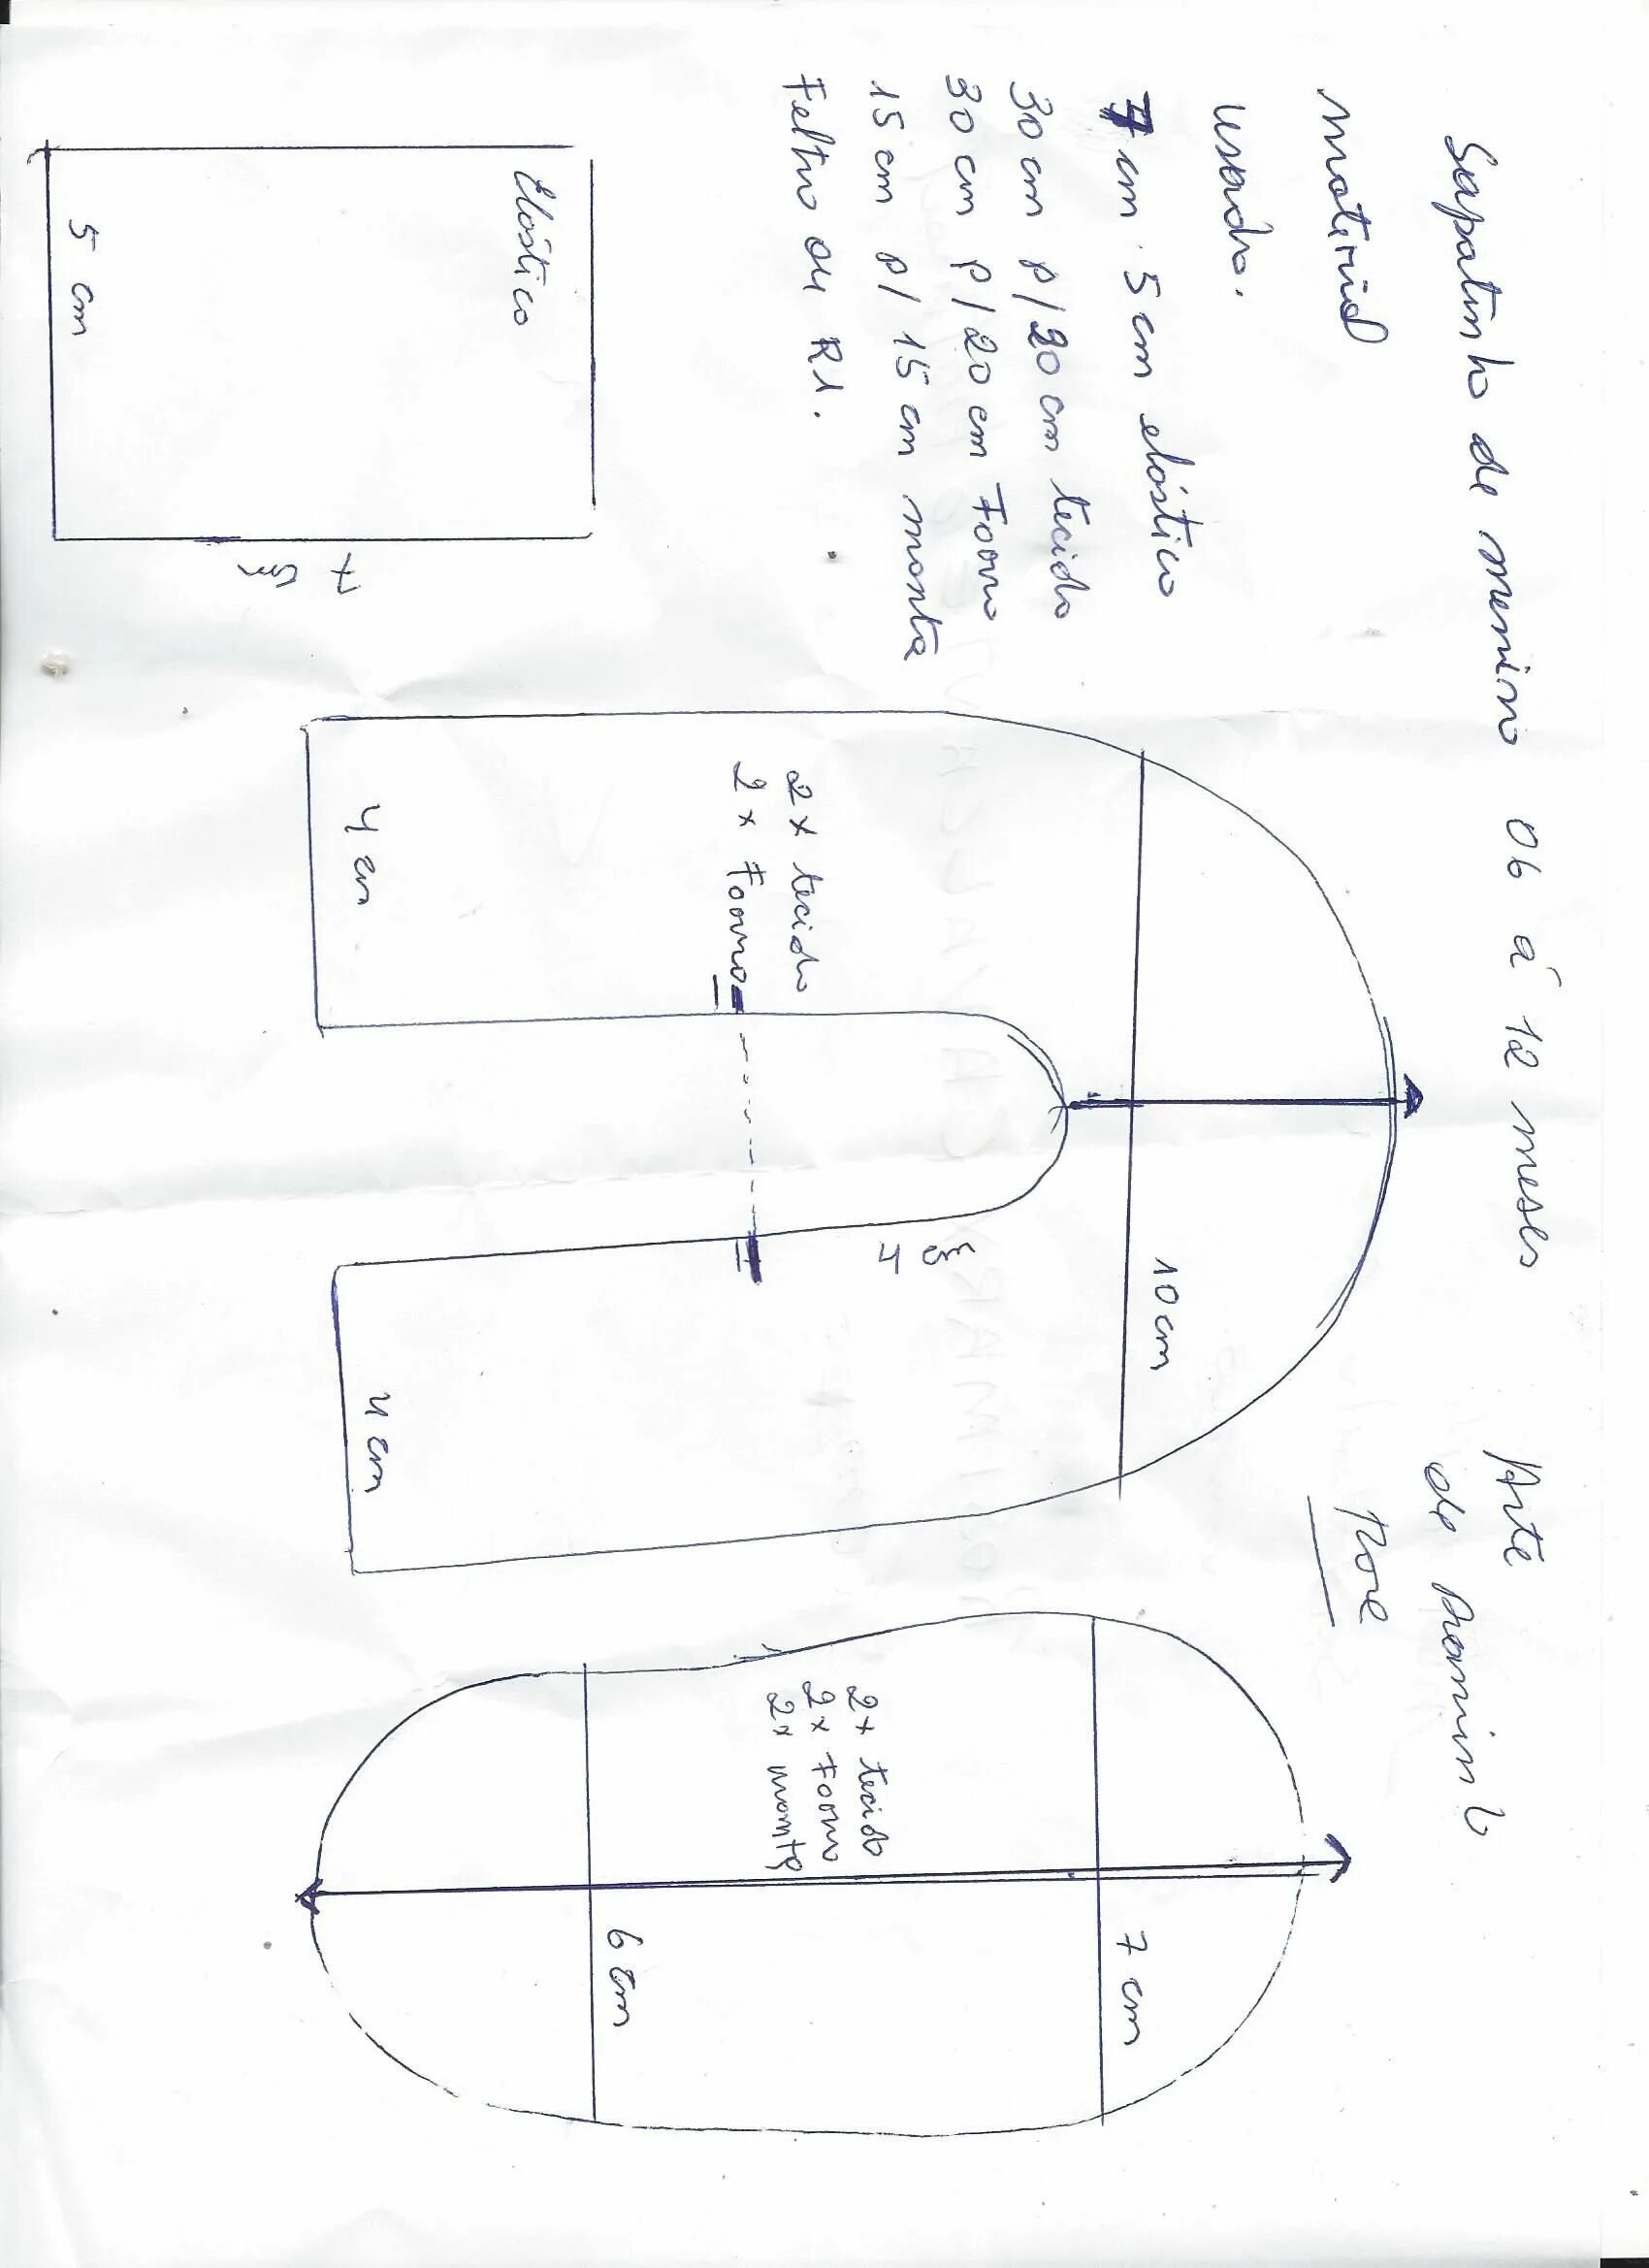 Sapatinho de menino 06 á 12 meses
Arte
de
More
material
usado.
7 cm 5 cm elástico
30 cm p/20 cm tecido
30 cm p/20 cm Forro
15 cm p/ 15 cm manta
Feltro ou R1.
Elástico
5 cm
7 cm
10 cm
4 cm
2x tecido
2x Forro
4 cm
4 cm
7 cm
2x tecido
2x Forro
2x manta
6 cm